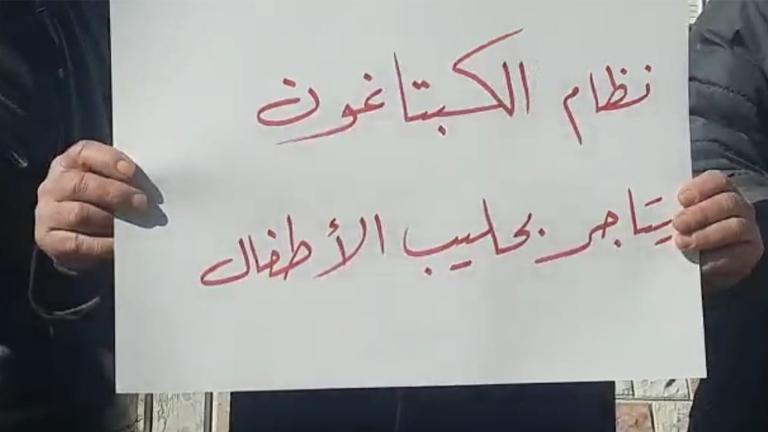 نظام الكبتاغون
يتاجر بحليب الأطفال